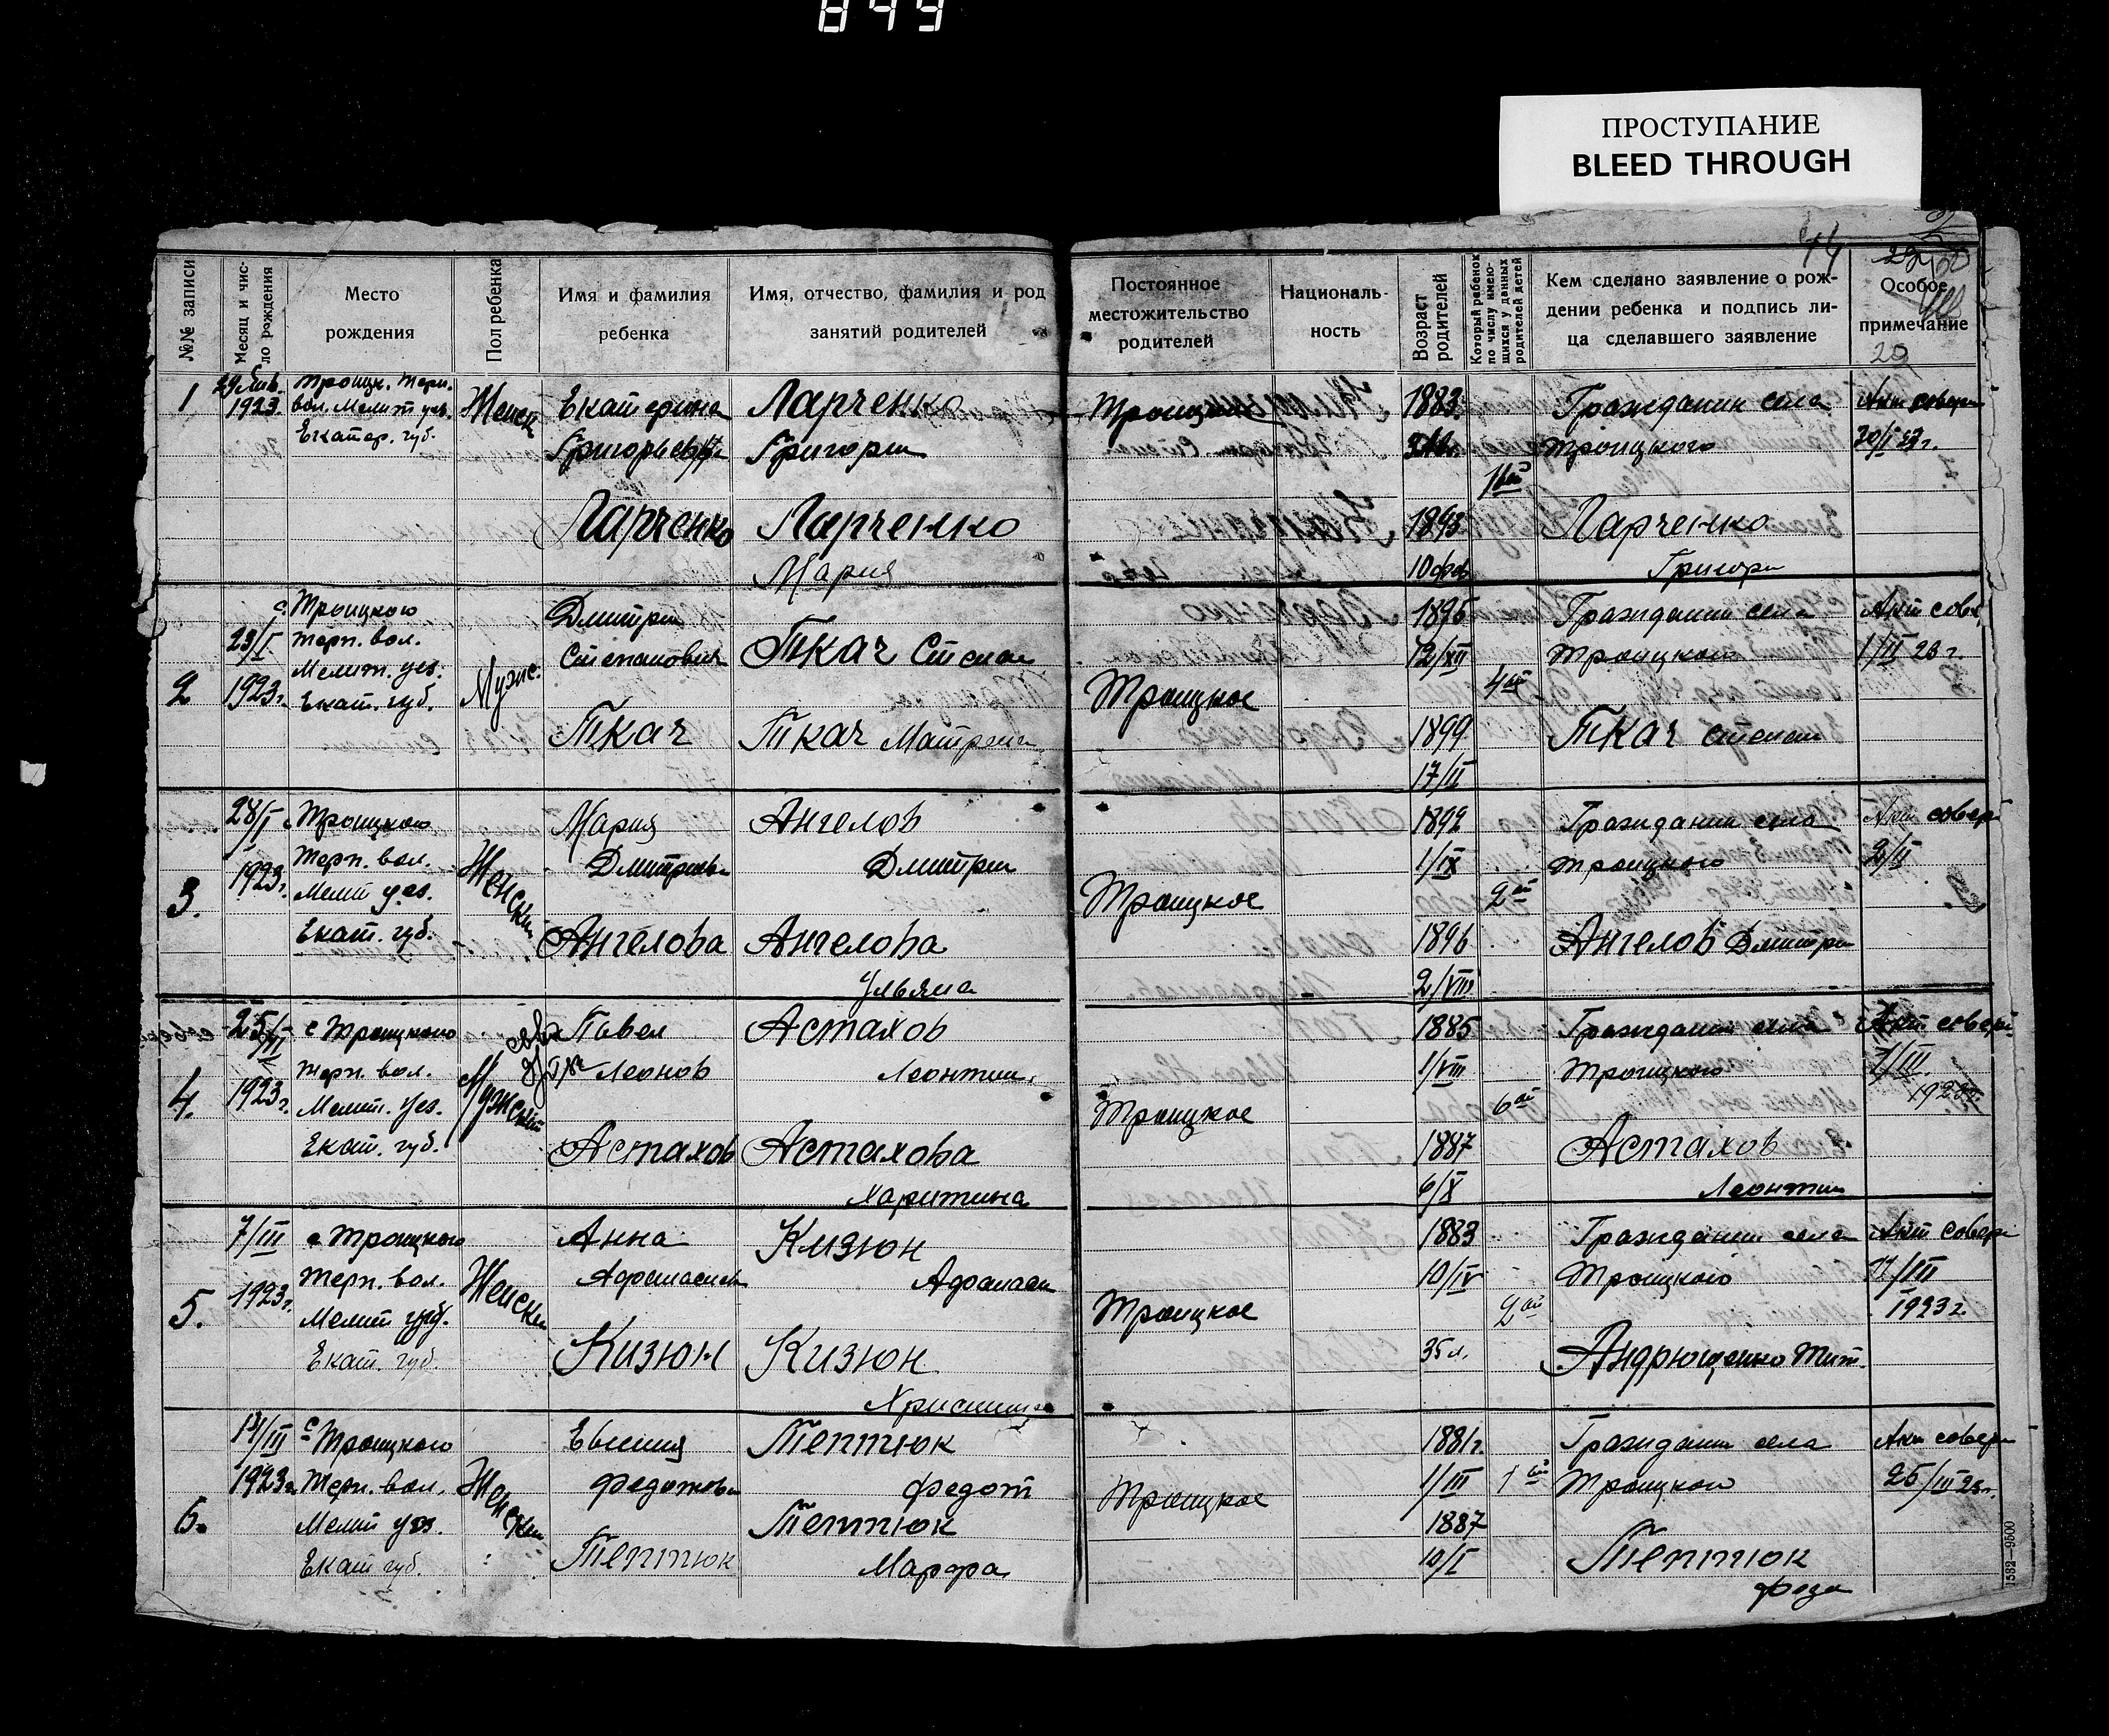 849
ПРОСТУПАНИЕ
BLEED THROUGH
44
№№ записи
Месяц и чис-
ло рождения
Место
рождения
Пол ребенка
Имя и фамилия
ребенка
Имя, отчество, фамилия и род
занятий родителей
Постоянное
местожительство
родителей
Националь-
ность
Возраст
родителей
Который ребенок
по числу имею-
щихся у данных
родителей детей
Кем сделано заявление о рож-
дении ребенка и подпись ли-
ца сделавшего заявление
Особое
примечание
29
1
29 Янв.
1923.
Троицк. Терп.
вол. Мелит уез.
Екатер. губ.
Женск
Екатерина
Григорьевна
Ларченко
Ларченко
Григорий
Ларченко
Мария
Троицкое
1883
1893
10 фев
1ый
Гражданин села
Троицкого
Ларченко
Григори
Акт соверш
30/I 23 г.
2
23/I
1923г.
с. Троицкого
Терп. вол.
Мелит. уез.
Екат. губ.
Мужс.
Дмитрий
Степанович
Ткач
Ткач Степан
Ткач Матрена
Троицкое
1895
12/XII
1899
17/II
4ый
Гражданин села
Троицкого
Ткач Степан
Акт сове
1/II 23 г.
3.
28/I
1923г.
Троицкого
Терп. вол.
Мелит уез.
Екат. губ.
Женский
Мария
Дмитриев
Ангелова
Ангелов
Дмитрий
Ангелова
Ульяна
Троицкое
1892
1/IX
1896
2/VIII
2ой
Гражданин села
Троицкого
Ангелов Дмитри
Акт совер
2/II
4.
1923г.
с Троицкого
Терп. вол.
Мелит. Уез.
Екат. губ.
Мужской
Павел
Леонов
Астахов
Астахов
Леонтий
Астахова
Харитина
Троицкое
1885
1/VIII
1887
6/X
6ой
Гражданин села
Троицкого
Астахов
Леонтий
Акт соверш
1/III
1923г.
5.
7/III
1923г.
с Троицкого
Терп. вол.
Мелит губ.
Екат. губ.
Женски
Анна
Афанасиев
Кизюн
Кизюн
Афанаси
Кизюн
Христина
Троицкое
1883
10/IV
35 л.
2ой
Гражданин села
Троицкого
Андрющенко Тит.
Акт соверш
11/III
1923г.
6.
14/III
1923г.
с Троицкого
Терп. вол.
Мелит уез.
Екат губ.
Женский
Евгения
Федотовн
Тептюк
Тептюк
Федот
Тептюк
Марфа
Троицкое
1881г.
1/III
1887
10/I
1ый
Гражданин села
Троицкого
Тептюк
Федо
Акт соверш
25/III 23г.
1582—9500